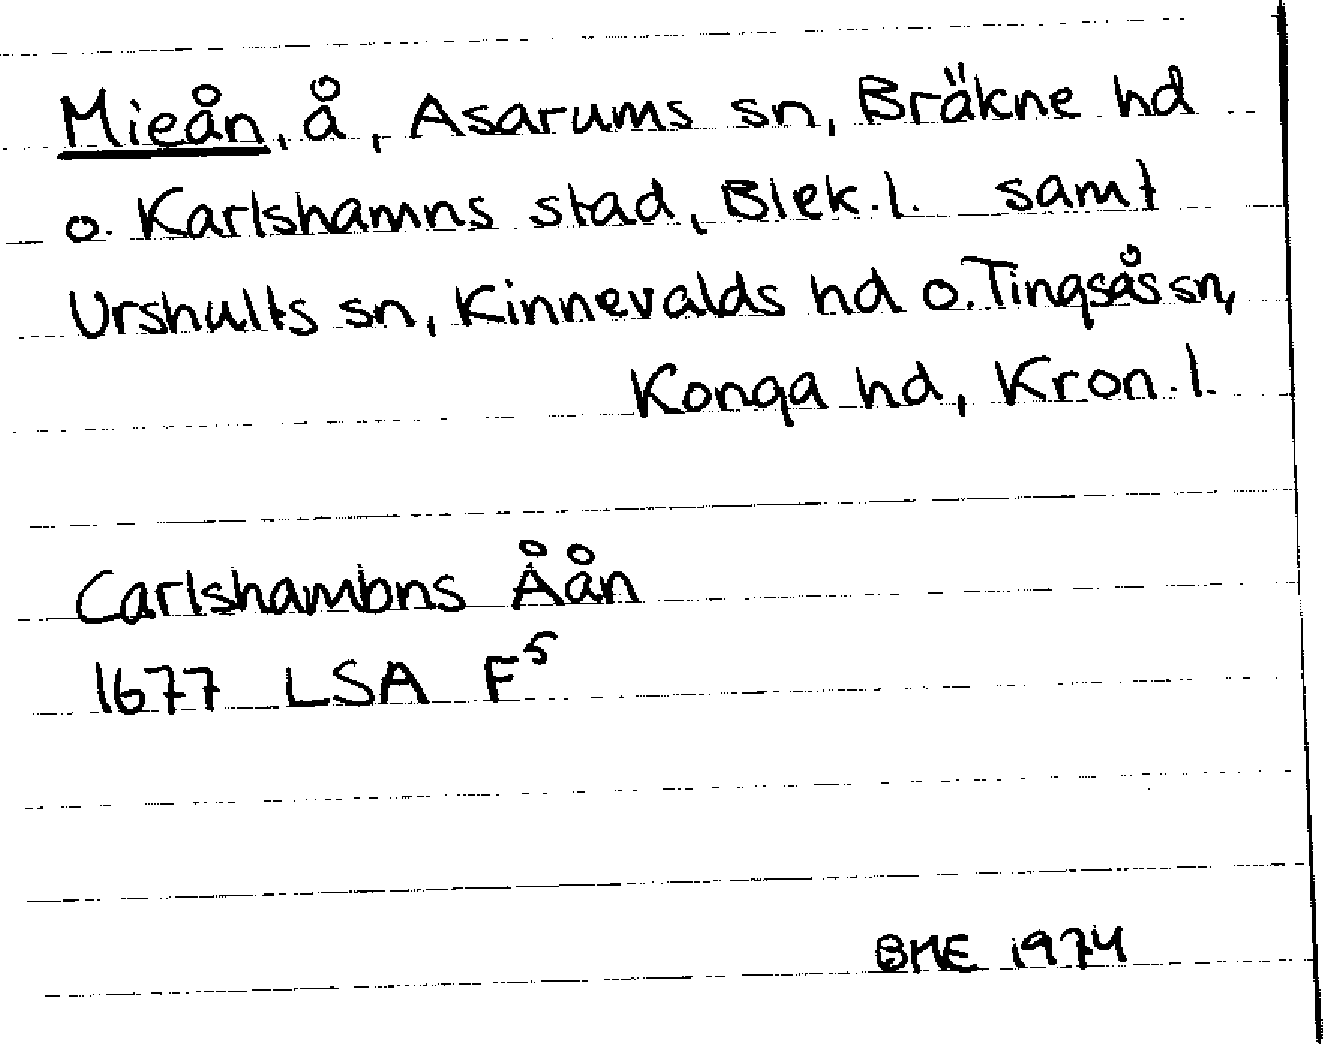 Mieån, å, Asarums sn, Bräkne hd
o. Karlshamns stad, Blek. l. samt
Urshults sn, Kinnevalds hd o. Tingsås sn,
Konga hd, Kron. l.
Carlshambns Åån
1677 LSA F⁵
BME 1974